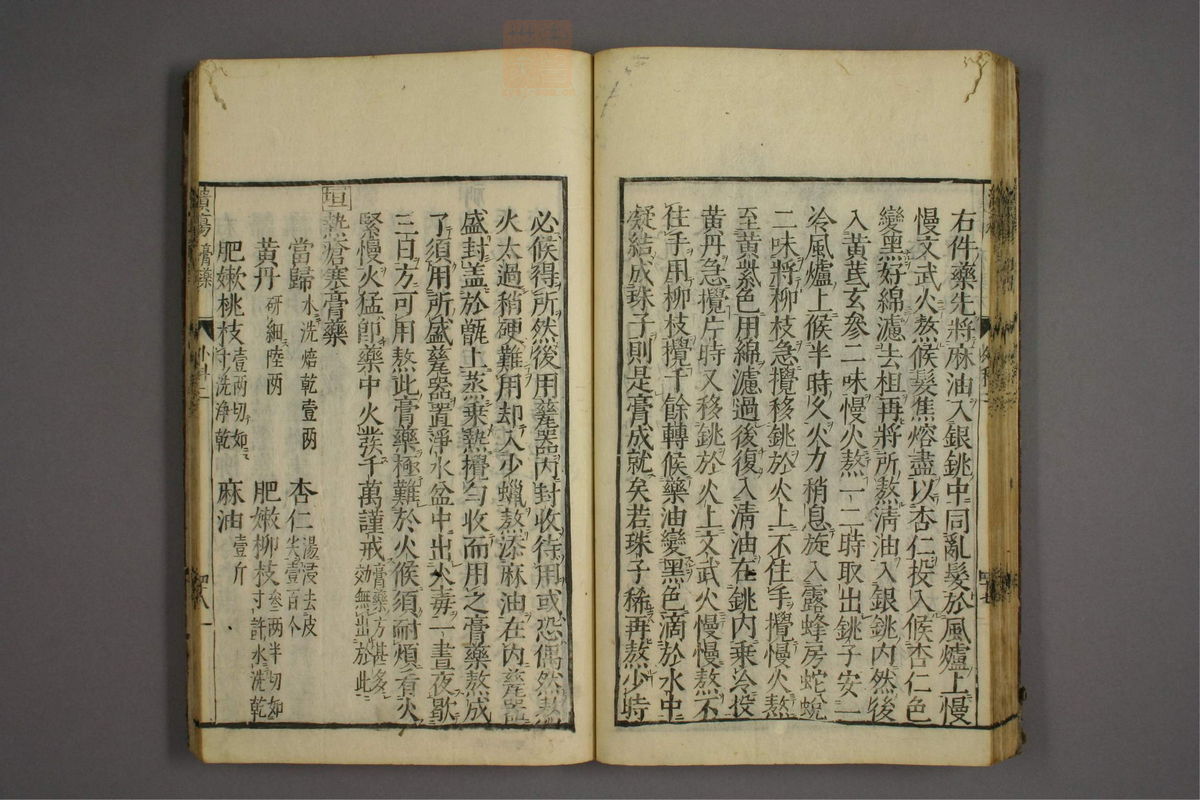 右件藥先將麻油入銀銚中同亂髮於風爐上慢
慢文武火熬候髮焦熔盡以杏仁投入候杏仁色
變黑好綿濾去柤再將所熬清油入銀銚内然後
入黃蓍玄參二味慢火熬一二時取出銚子安一
冷風爐上候半時久火力稍息旋入露蜂房蛇蛻
二味將柳枝急攪移銚於火上不住手攪慢火熬
至黃紫色用綿濾過後復入清油在銚内乗冷投
黃丹急攪片時又移銚於火上文武火慢慢熬不
住手用柳枝攪千餘轉候藥油變黑色滴於水中
凝結成珠子則是膏成就矣若珠子稀再熬少時
必候得所然後用甆器内封收待用或恐偶然熬
火太過稍硬難用却入少蠟熬添麻油在内甆器
盛封盖於甑上蒸乗熱攪勻收而用之膏藥熬成
了須用所盛甆器置淨水盆中出火毒一晝夜歇
三日方可用熬此膏藥極難於火候須耐煩看火
緊慢火猛卽藥中火發千萬謹戒膏藥方甚多效無出於此
垣熱瘡塞膏藥
當歸水洗焙乾壹两 杏仁湯浸去皮尖壹百个
黃丹研細陸两 肥嫩柳枝叁两半切如寸許水洗乾
肥嫩桃枝壹两切如寸洗淨乾 麻油壹斤
膏藥